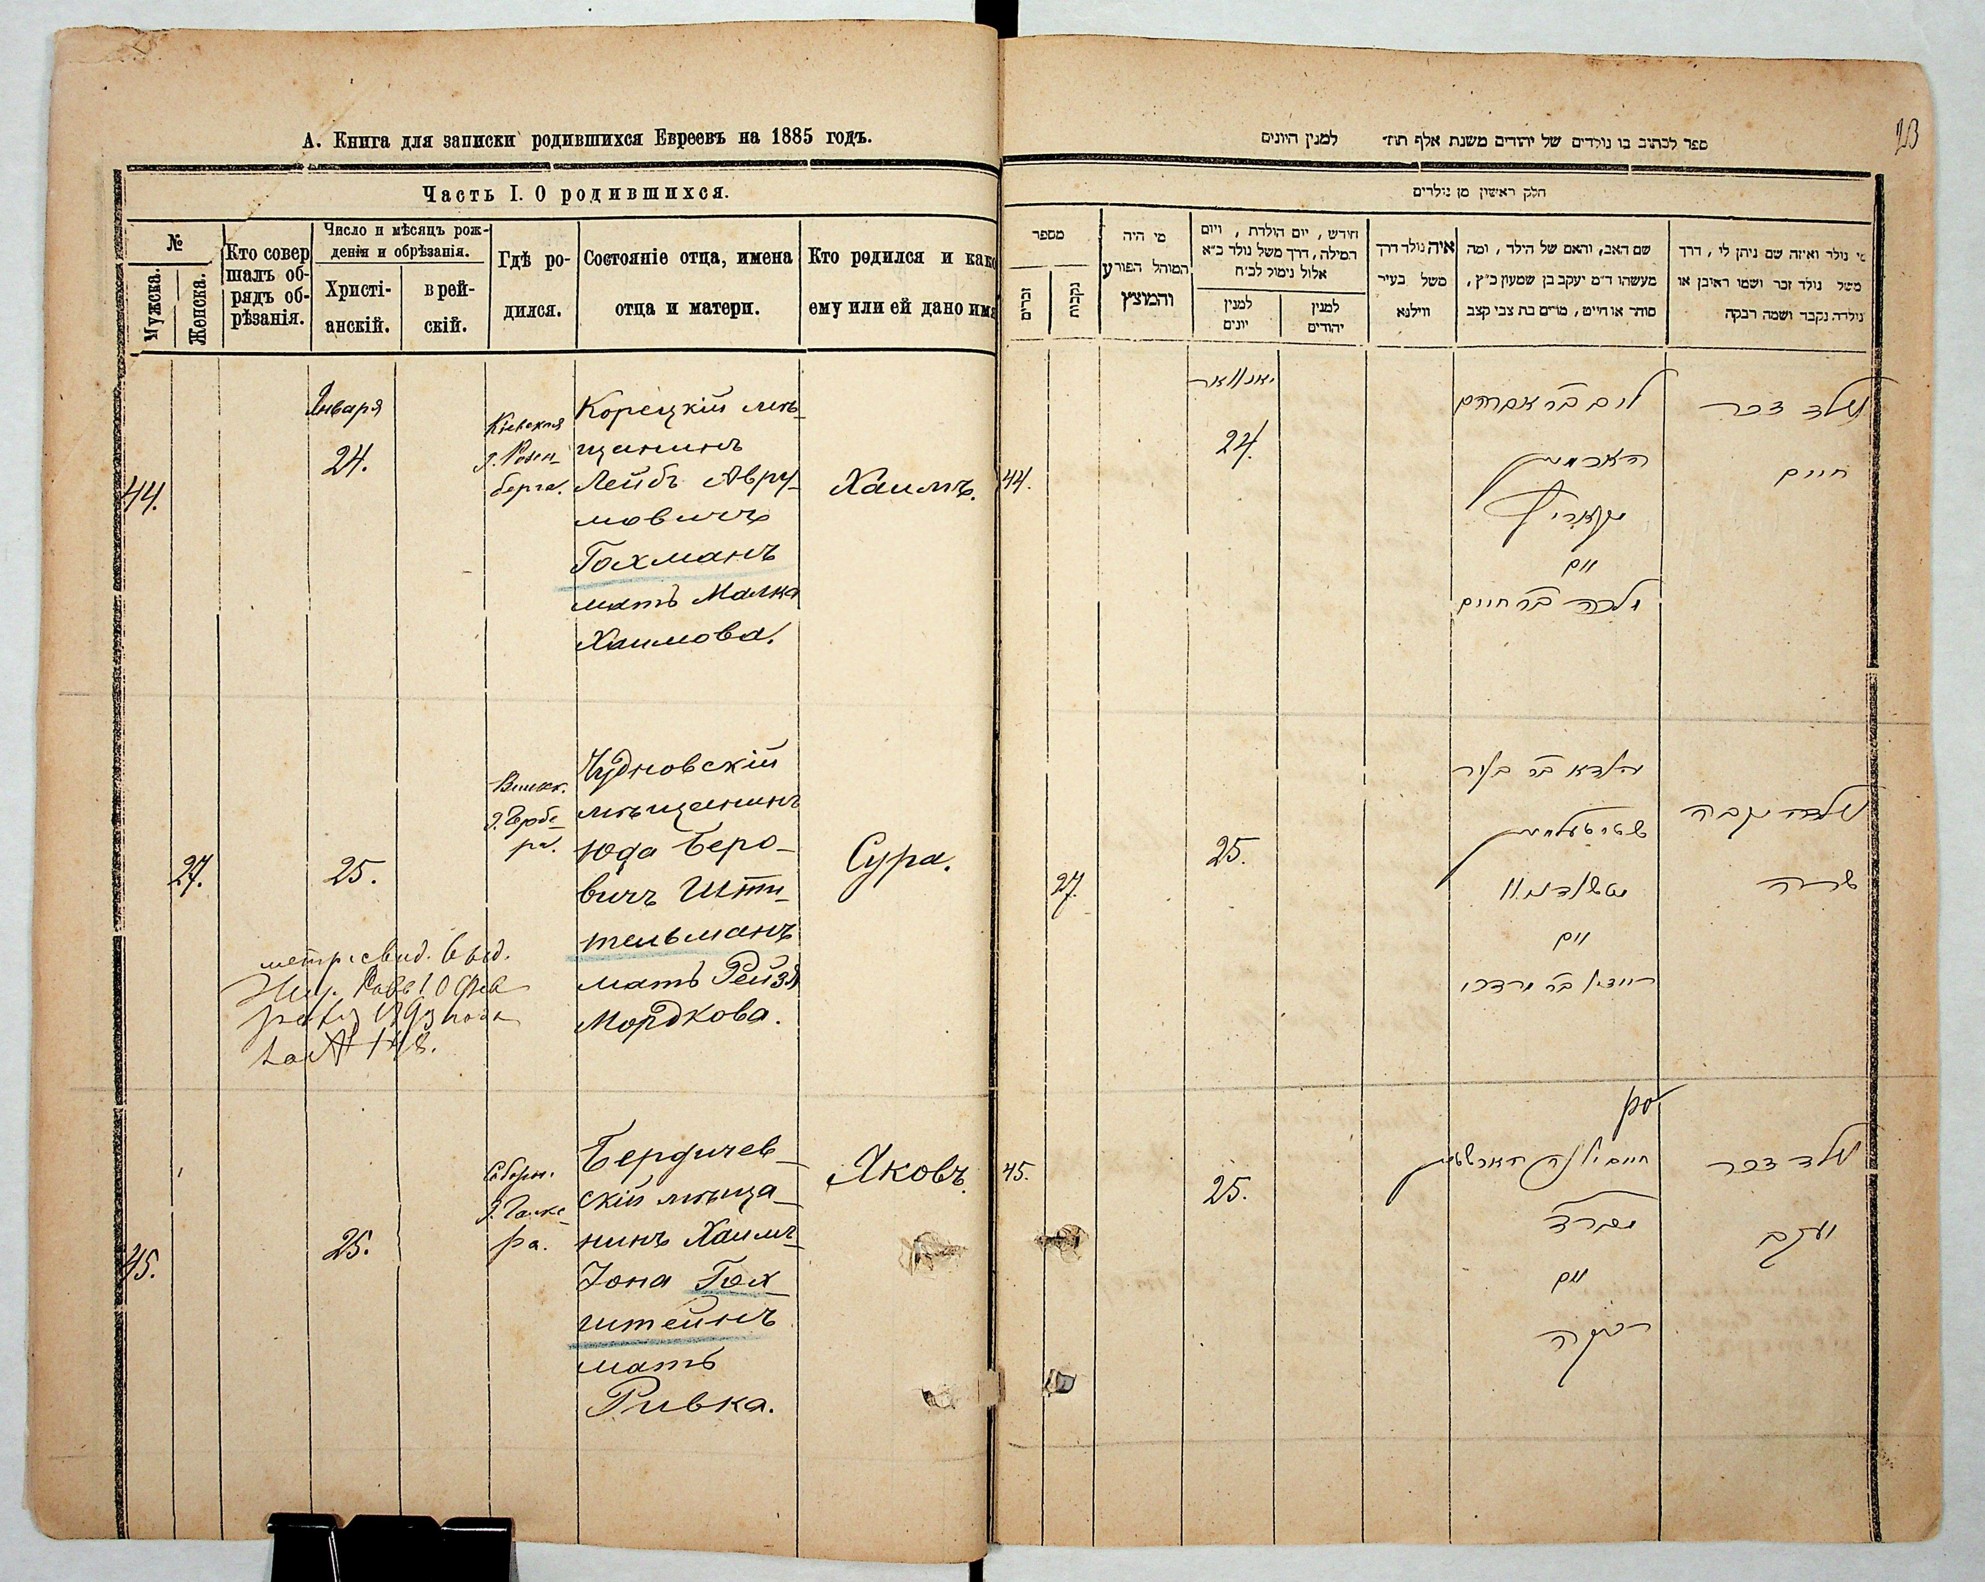 А. Книга для записки родившихся Евреевъ на 1885 годъ.
Часть I. О родившихся.
№
Мужска.
Женска.
Кто совер
шалъ об-
рядъ об-
рѣзанія.
Число и мѣсяцъ рож-
денія и обрѣзанія.
Христі-
анскій.
врей-
скій.
Гдѣ ро-
дился.
Состояніе отца, имена
отца и матери.
Кто родился и како
ему или ей дано имя
44.
Января
24.
Кіевская
д. Розен-
берга.
Корецкій мѣ-
щанинъ
Лейбъ Авру-
мовичъ
Гохманъ
мать Малка
Хаимова.
Хаимъ.
27.
25.
д. Ербе-
ра.
Чудновскій
мѣщанинъ
Юда Беро-
вичъ Шти-
тельманъ
мать Рейзя
Мордкова.
Сура.
метр. свид. выд.
45.
25.
д. Гальпе-
ра.
Бердичев-
скій мѣща-
нинъ Хаимъ-
Іона Гол-
штейнъ
мать
Ривка.
Яковъ.
23
ספר לכתוב בו נולדים של יהודים משנת אלף תת״ למנין היונים
חלק ראשון מן נולדים
מספר
זכרים
נקבות
מי היה
המוהל הפורע
והמוצץ
חודש, יום הולדת, ויום
המילה, דרך משל נולד כ״א
אלול נימול לכ״ח
למנין
יונים
למנין
יהודים
איה נולד דרך
משל בעיר
ווילנא
שם האב, והאם של הילד, ומה
מעשהו ד״מ יעקב בן שמעון כ״ץ,
סוחר או חייט, מרים בת צבי קצב
מי נולד ואיזה שם ניתן לו, דרך
משל נולד זכר ושמו ראובן או
נולדה נקבה ושמה רבקה
44.
יאנואר
24.
ליב בר אברהם
האכמאן
מקאריץ
ואם
מלכה בר חיים
נולד זכר
חיים
27.
25.
יהודא בר בער
שטיטעלמאן
מטשודנאוו
ואם
רייזע בר מרדכי
נולדה נקבה
שרה
45.
25.
חיים יונה האלשטיין
ואם
רבקה
נולד זכר
יעקב